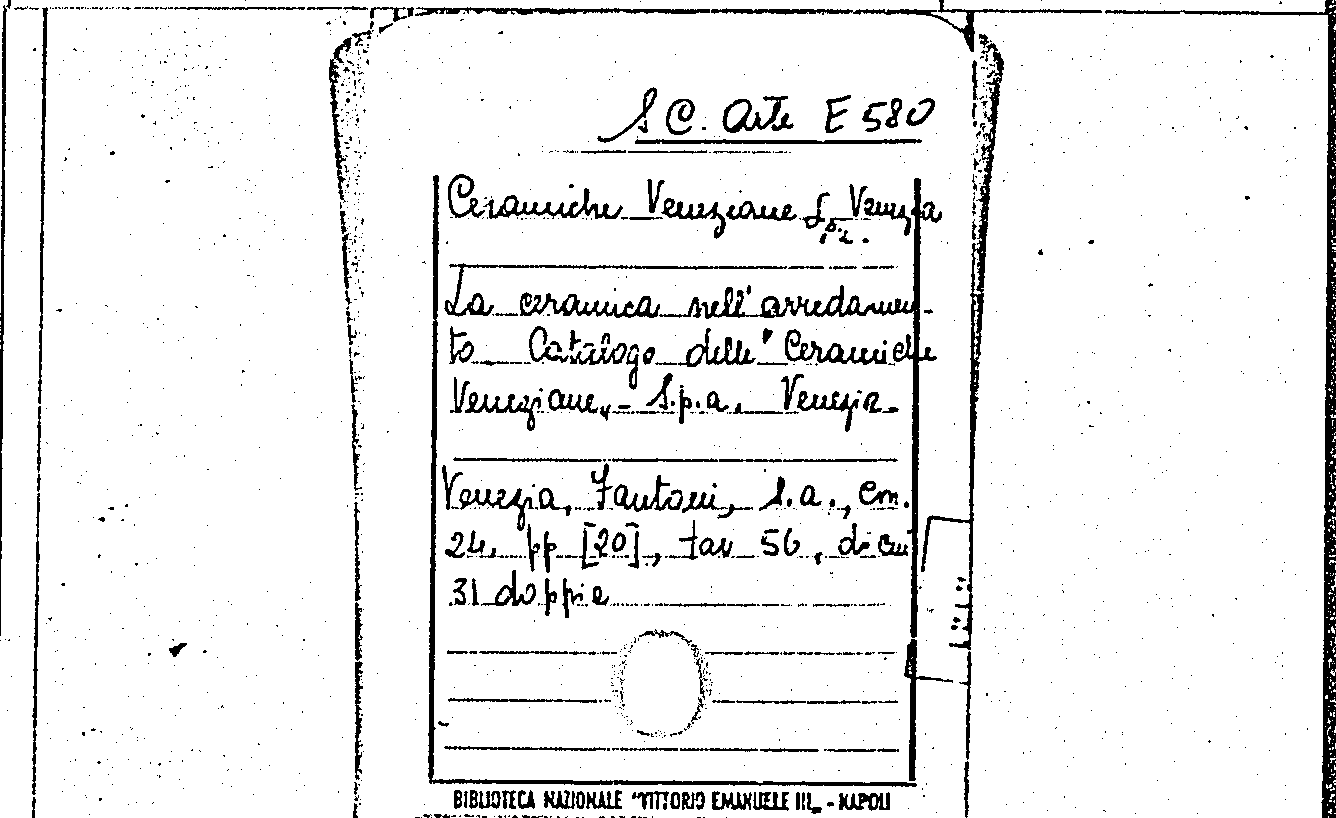 S C. Arte E 580
Ceramiche Veneziane S.p.a. Venezia
La ceramica nell'arredamen-
to Catalogo delle "Ceramiche
Veneziane„ - S.p.a. Venezia -
Venezia, Fantoni, S.a., cm.
24, pp [20], tav 56, di cui
31 doppie
BIBLIOTECA NAZIONALE "VITTORIO EMANUELE III„ - NAPOLI